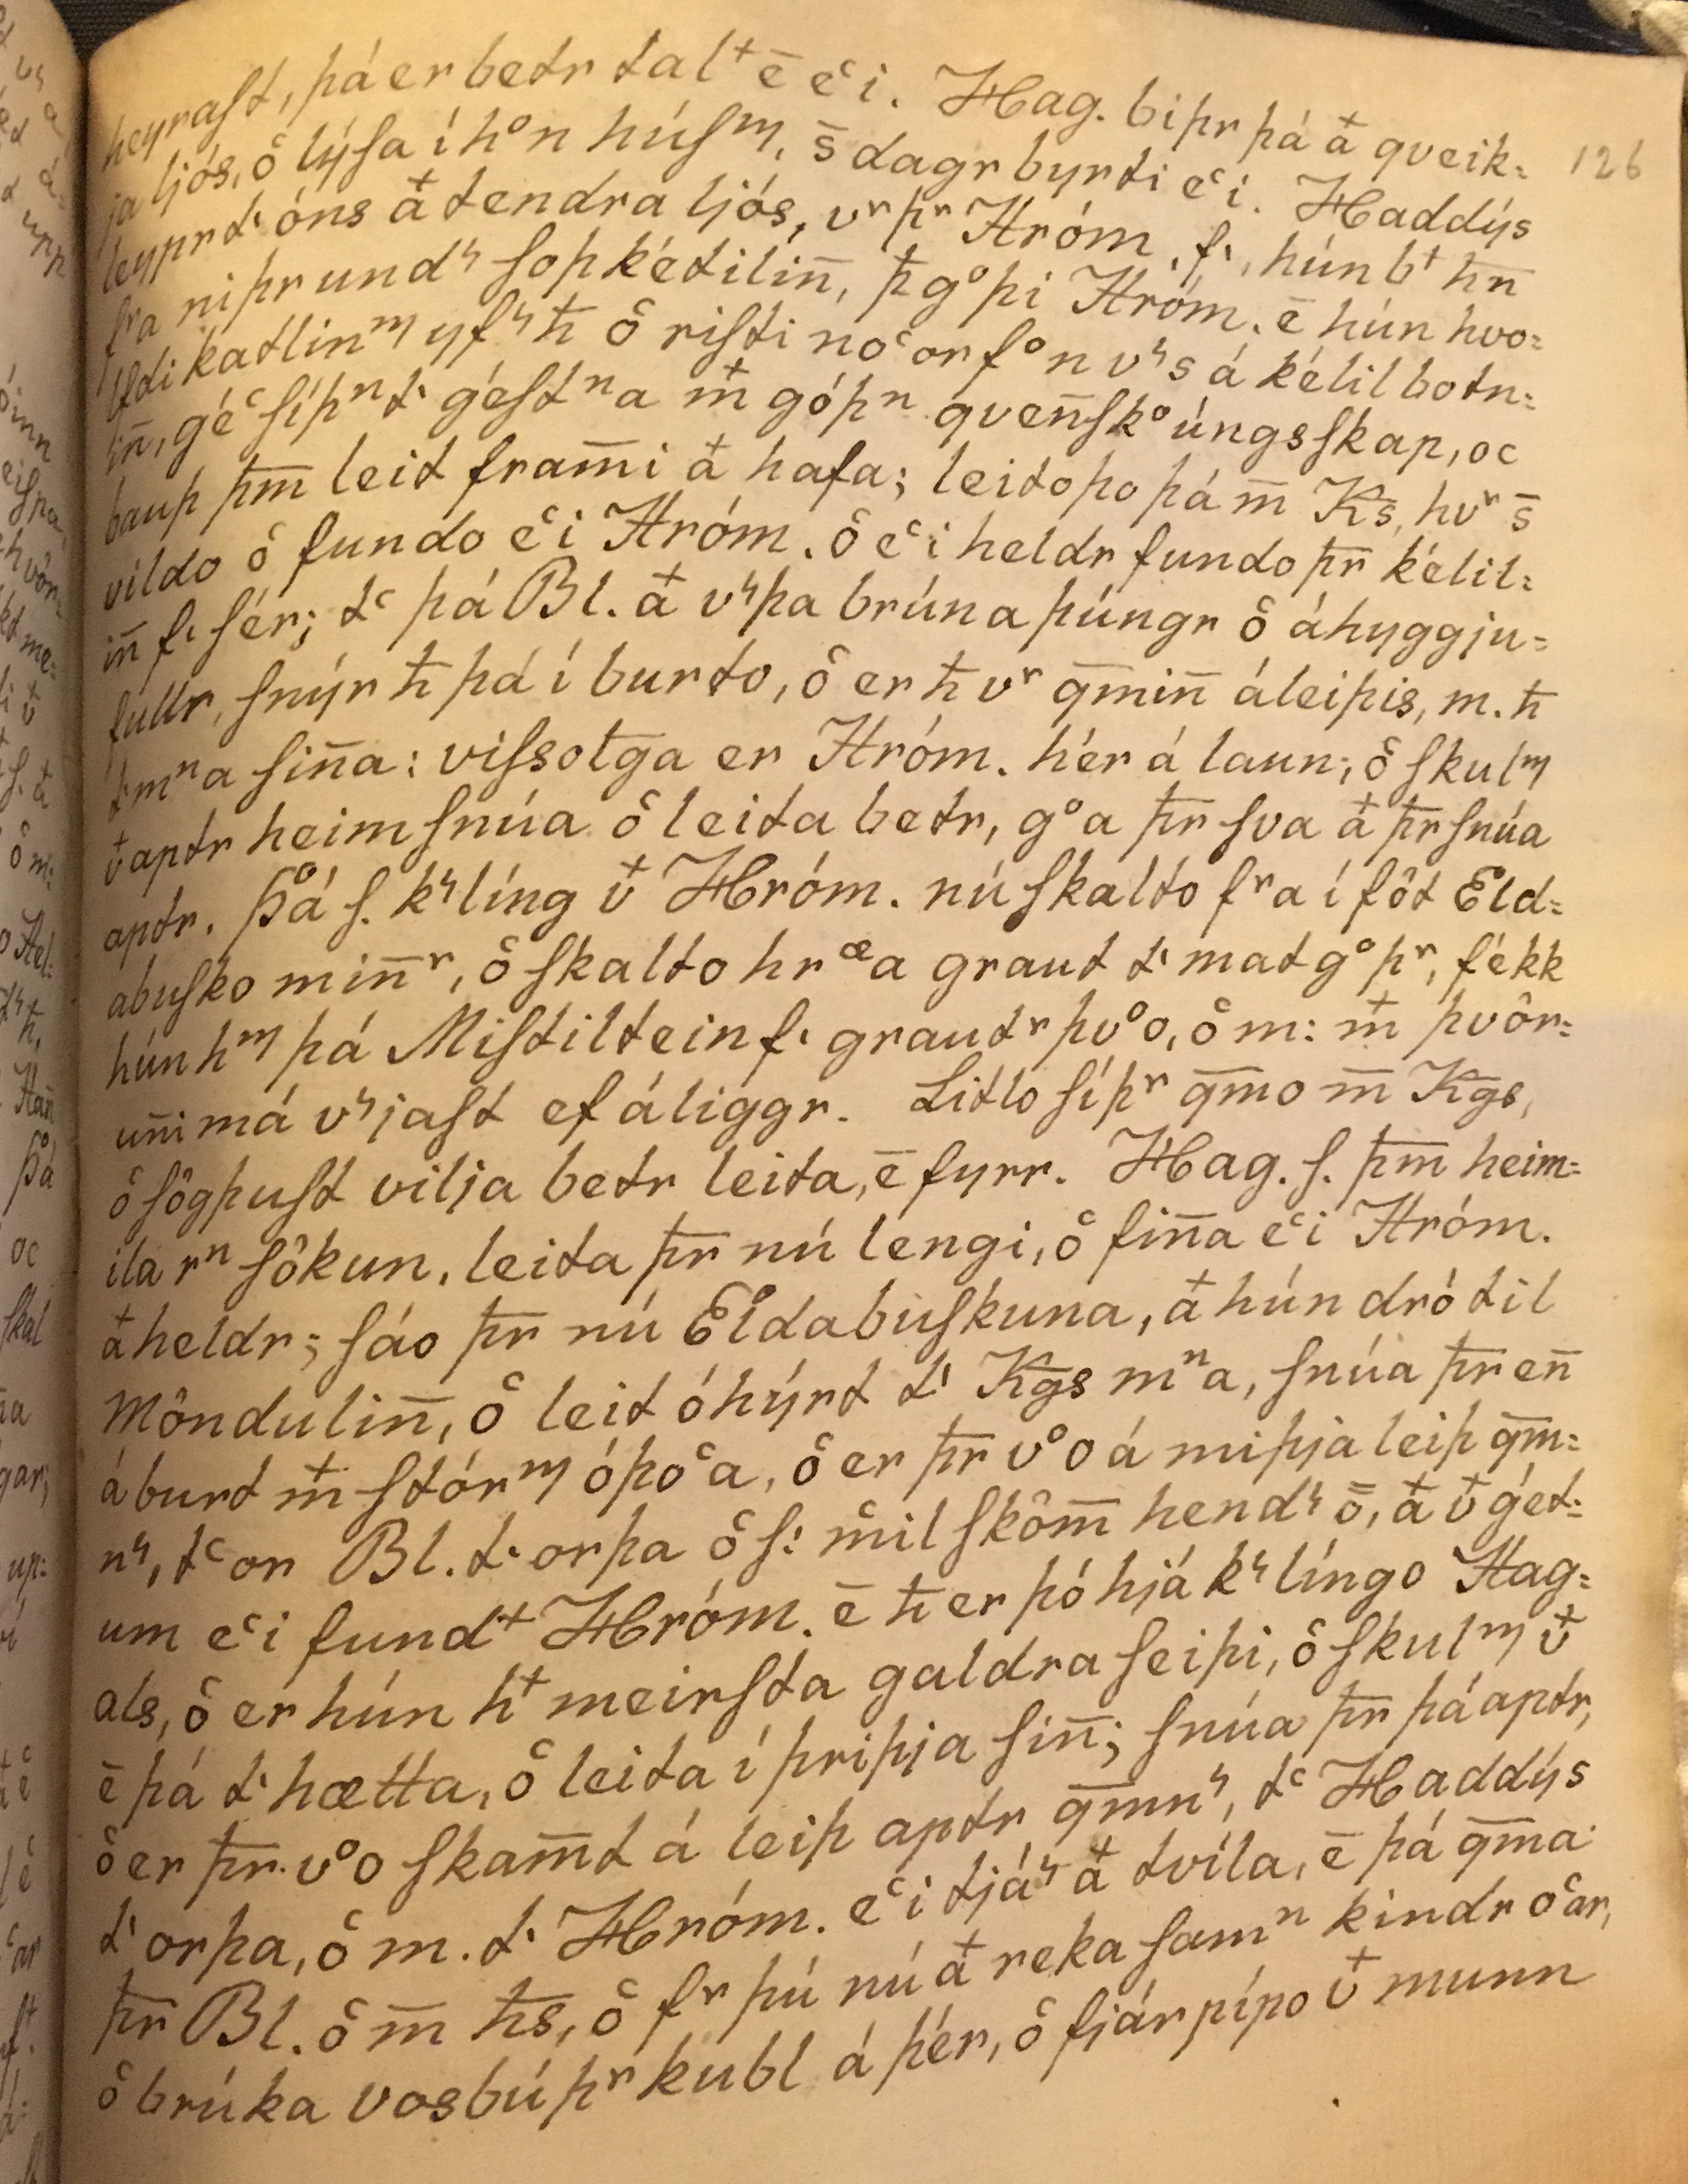 heyraſt, þá er betr tal⁺ ē eͨi. Hag. biþr þá a⁺ qveik: 126
ja ljós, oͨ lýſa í hᵒn húſᵐ, s̄ dagr byrti eͨi. Haddýs
leyprt· óns a⁺ tendra ljós, vʳ þʳ Hróm. ſ·, hún b⁺ h̄n
fʳa niþr undˢ ſoþkétilin̄, þ̄ gᵒþi Hróm. ē hún hvo:
lfdi katlinᵐ yfˢ h̄ oͨ riſti noͨorfᵒn vˢs á kélilbotn:
in̄, géͨ síþⁿ t· géſtⁿa m⁺ góþⁿ qven̄ſkᵒúngsſkap, oc
bauþ þm̄ leit fram̄i a⁺ hafa; leitoþo þá m̄ Ks̄, hvʳ s̄
vildo oͨ fundo eͨi Hróm. oͨ eͨi heldr fundo þr̄ kélil:
in̄ f· ſér; tͨ þá Bl. a⁺ vˢþa brúnaþúngr oͨ áhyggju:
fullr, ſnýr h̄ þá í burto, oͨ er h̄ vʳ qm̄in̄ áleiþis, m. h̄
t· mⁿa ſin̄a: viſsotḡa er Hróm. hér á laun; oͨ ſkulᵐ
v⁺ aptr heim ſnúa oͨ leita betr, gᵒa þr̄ ſva a⁺ þr̄ ſnúa
aptr. Þá ſ. kˢlíng v⁺ Hróm. nú ſkalto fʳa í fôt Eld:
abuſko min̄ʳ, oͨ ſkalto hrᵃᵉa graut t· matgᵒþʳ, fékk
hún hᵐ þá Miſtiltein f· grautʳþvᵒo, oͨ m: m⁺ þvôr:
un̄i má vˢjaſt ef áliggr. Litlo síþʳ qm̄o m̄ Kḡs,
oͨ ſôgþuſt vilja betr leita, ē fyrr. Hag. ſ. þm̄ heim:
ila rⁿſôkun, leita þr̄ nú lengi, oͨ fin̄a eͨi Hróm.
a⁺ heldr; ſáo þr̄ nú Eldabuſkuna, a⁺ hún dró til
Môndulin̄, oͨ leit óhýrt t· Kḡs mⁿa, ſnúa þr̄ en̄
á burt m⁺ ſtórᵐ óþoͨa, oͨ er þr̄ vᵒo á miþja leiþ qm̄:
nˢ, tͨ or Bl. t· orþa oͨ ſ: mͦil ſkôm̄ hendˢ ō, a⁺ v⁺ gét:
um eͨi fund⁺ Hróm. ē h̄ er þó hjá kˢlíngo Hag:
als, oͨ er hún h⁺ meirſta galdraſeiþi, oͨ ſkulᵐ v⁺
ē þá t· hætta, oͨ leita í þriþja ſin̄; ſnúa þr̄ þá aptr,
oͨ er þr̄ vᵒo ſkam̄t á leiþ aptr qm̄nˢ, tͨ Haddýs
t· orþa, oͨ m. t· Hróm. eͨi tjáˢ a⁺ tvíla, ē þá qm̄a
þr̄ Bl. oͨ m̄ h̄s, oͨ fʳ þú nú a⁺ reka ſamⁿ kindr oͨar,
oͨ brúka vosbúþʳ kubl á þér, oͨ fjárpípo v⁺ munn